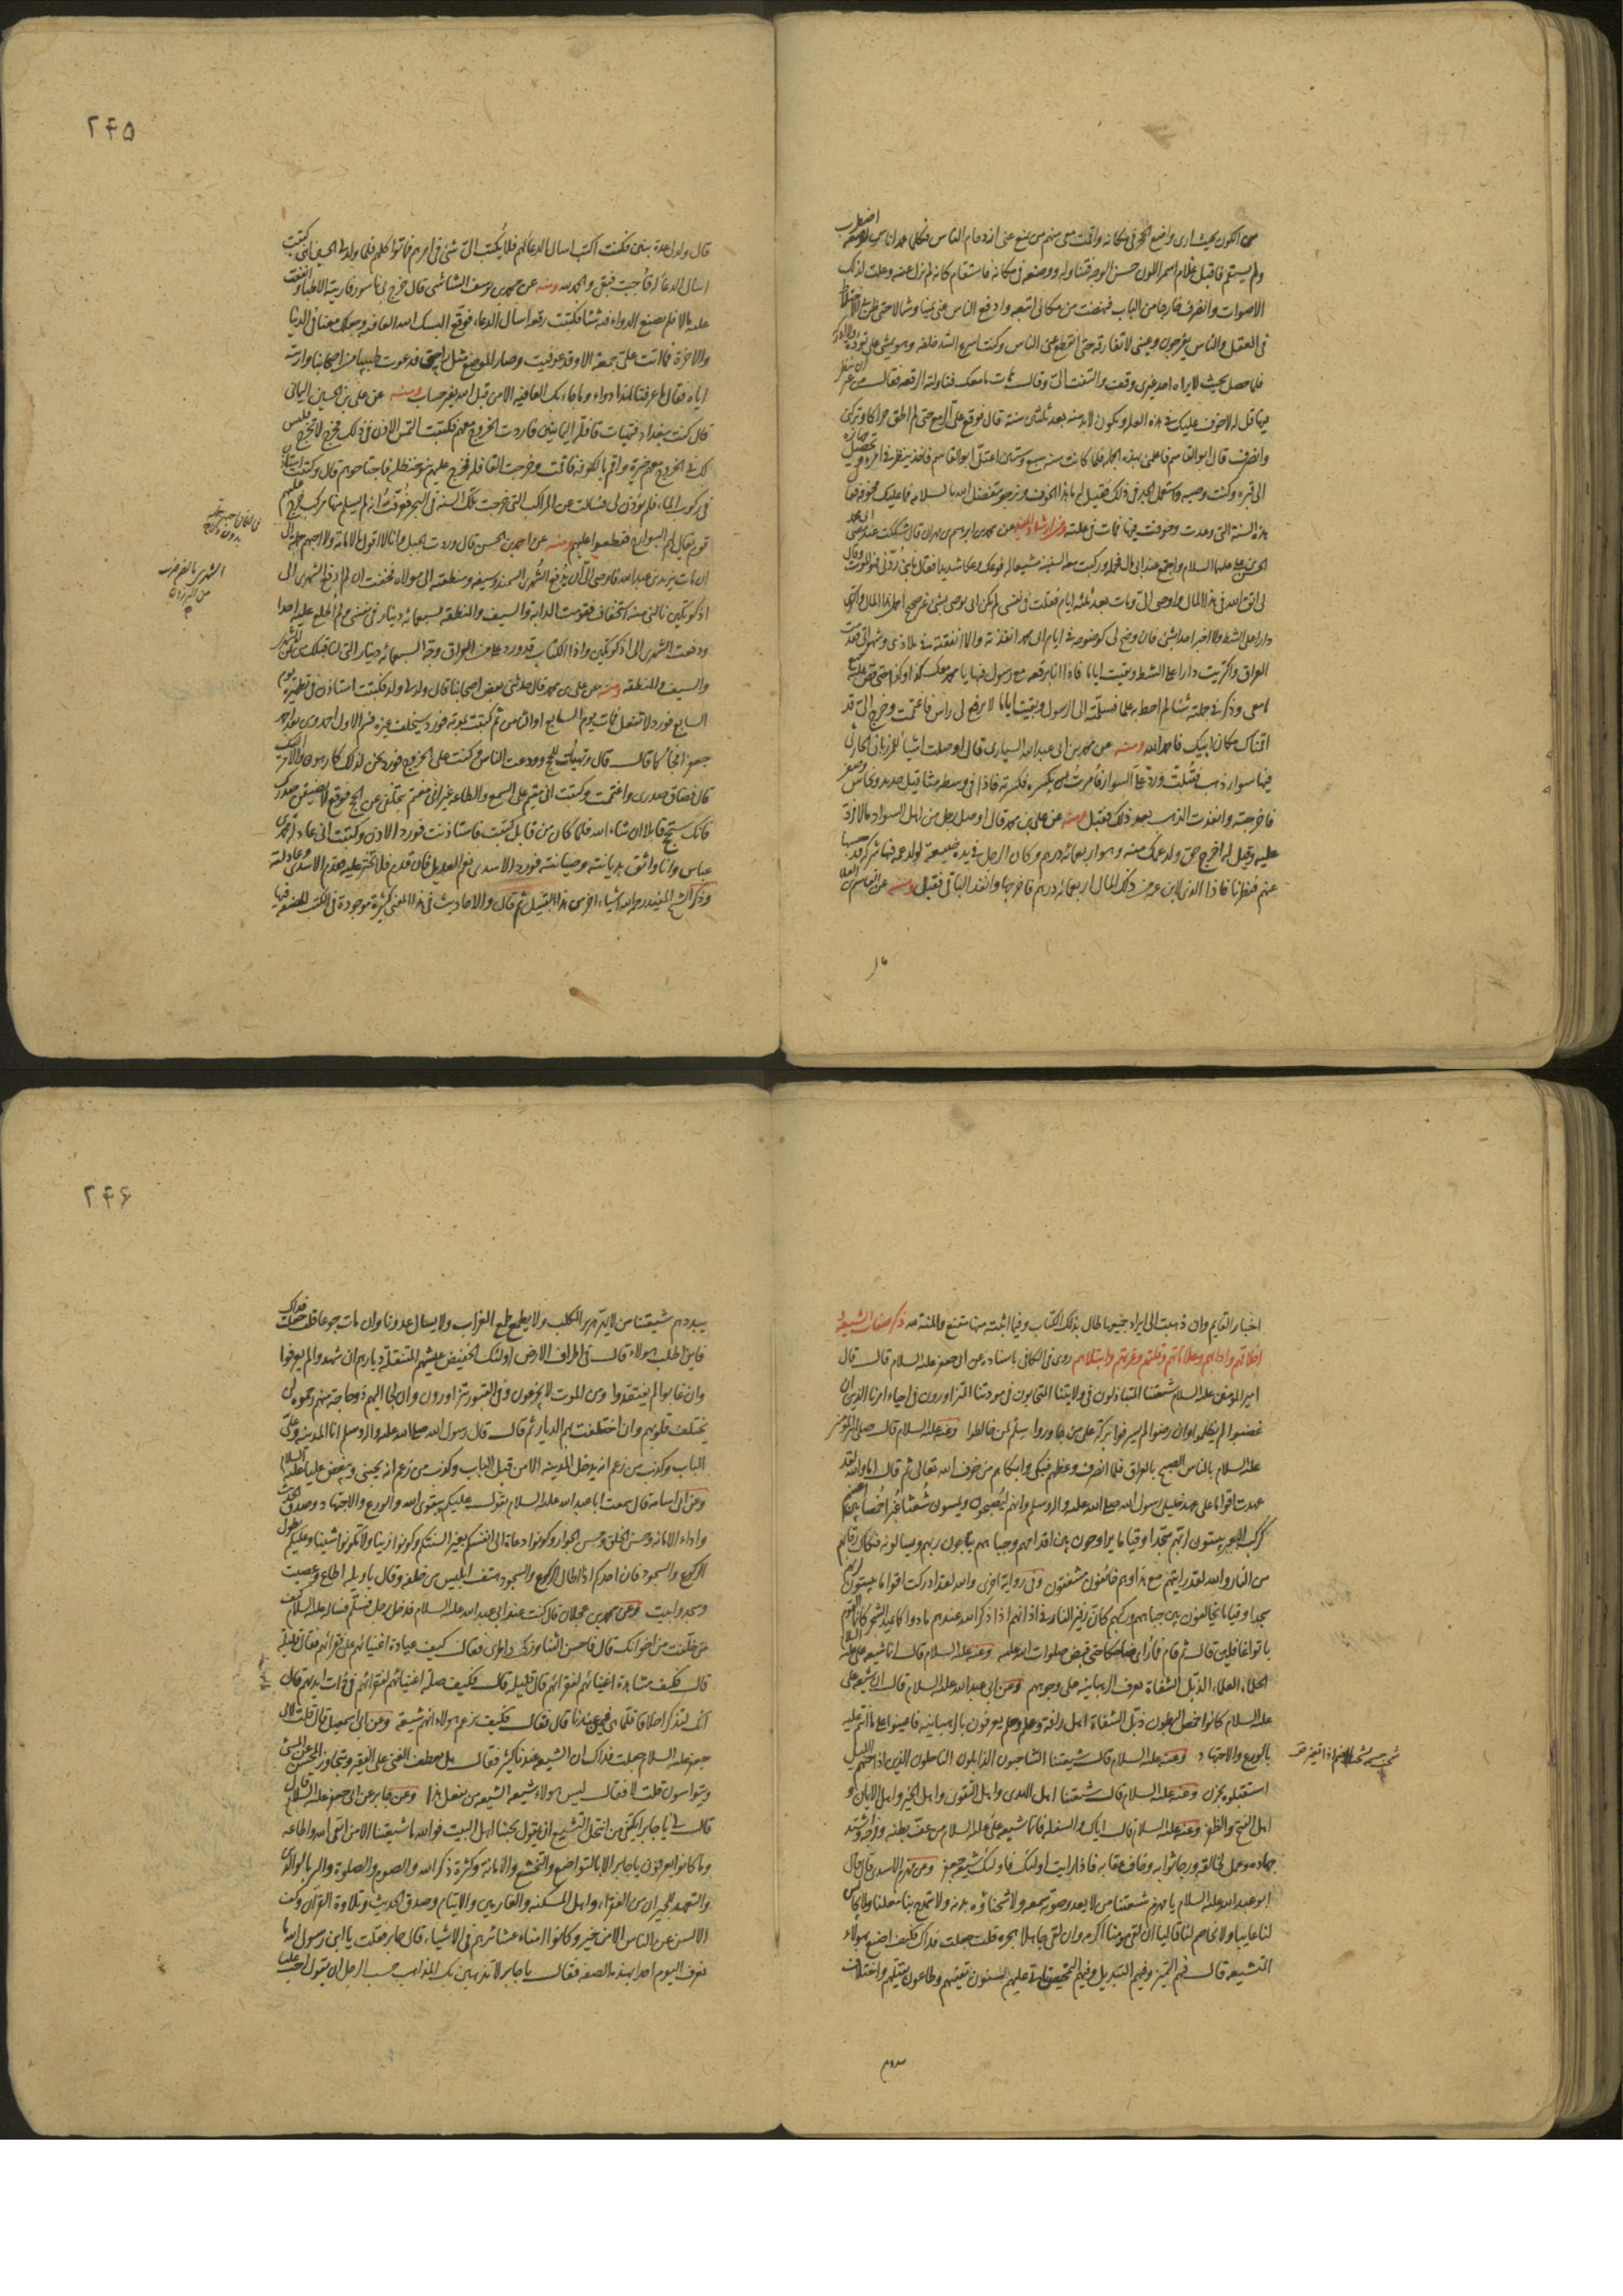 من اكون بحيث ارى واضع الحجر فى مكانه واقمت معى منهم من يمنع عنى ازدحام الناس فكلما عمد انسان لوضعه اضطرب
ولم يستقم فاقبل غلام اسمر اللون حسن الوجه فتناوله ووضعه فى مكانه فاستقام كانه لم يزل عنه وعلت لذلك
الاصوات وانصرف خارجا من الباب فنهضت من مكانى اتبعه وادفع الناس عنى يمينا وشمالا حتى ظن بى الاختلاط
فى العقل والناس يفرجون وعينى لا تفارقه حتى انقطع عن الناس وكنت اسرع الشد خلفه وهو يمشى على تؤدة ولا ادركه
فلما حصل بحيث لا يراه احد غيرى وقف والتفت الىّ وقال هات ما معك فناولته الرقعة فقال من غير ان ينظر
فيها قل له لا خوف عليك فى هذه العلة ويكون لا بد منه بعد ثلثين سنة قال فوقع علىّ الزمع حتى لم اطق حراكا وتركنى
وانصرف قال ابو القاسم فاعلمنى بهذه الجملة فلما كانت سنه سبع وستين اعتل ابو القاسم فاخذ ينظر فى امره وتحصيل جهازه
الى قبره وكتب وصيه واستعمل الجد فى ذلك فقيل له ما هذا الخوف ونرجو تفضل الله بالسلامه فما عليك مخوفة فقال
هذه السنة التى وعدت وخوفت فيها فمات فى علته ومن ارشاد المفيد عن محمد بن ابرهيم بن مهزيار قال شككت عند مضى ابى محمد
الحسن بن على عليهما السلام واجتمع عند ابى مال فحمله وركبت معه السفينة مشيعا له فوعك وعكا شديدا فقال يا بنى ردّنى فهو الموت وقال
لى اتق الله فى هذا المال واوصى الىّ ومات بعد ثلثه ايام فقلت فى نفسى لم يكن ابى يوصى بشئ غير صحيح احمل هذا المال واكترى
دارا على الشط ولا اخبر احدا بشئ فان وضح لى كوضوحه فى ايام ابى محمد انفذته والا انفقته فى ملاذى وشهواتى فقدمت
العراق واكتريت دارا على الشط وبقيت اياما فاذا انا برقعه مع رسول فيها يا محمد معك كذا وكذا حتى قص علىّ جميع
ما معى وذكر فى جملته شئا لم احط به علما فسلّمته الى الرسول وبقيت اياما لا يرفع لى راس فاغتممت وخرج الىّ قد
اقمناك مكان ابيك فاحمد الله ومنه عن محمد بن ابى عبد الله السيارى قال اوصلت اشياء للمرزبانى الحارثى
فيها سوار ذهب فقبلت وردّ علىّ السوار فأمرت بكسره فكسرته فاذا فى وسطه مثاقيل حديد ونحاس وصفر
فاخرجته وانفذت الذهب بعد ذلك فقبل ومنه عن على بن محمد قال اوصل رجل من اهل السواد مالا فردّ
عليه وقيل له اخرج حق ولد عمك منه وهو اربعمائه درهم وكان الرجل فى يده ضيعة لولد عمه فيها شركة قد حبسها
عنهم فنظر فاذا الذى لابن عمه من ذلك المال اربعمائه درهم فاخرجها وانفذ الباقى فقبل ومنه عن القاسم بن العلا
قال
۲۴۵
قال ولد لى عدة بنين فكنت اكتب اسال الدعا لهم فلا يكتب الىّ شئ فى امرهم فماتوا كلهم فلما ولد لى الحسين ابنى كتبت
اسال الدعا له فاجبت فبقى والحمد لله ومنه عن محمد بن يوسف الشاشى قال خرج بى ناسور فاريته الاطباء وانفقت
عليه مالا فلم يصنع الدواء فيه شئا فكتبت رقعه اسال الدعاء فوقع البسك الله العافيه وجعلك معنا فى الدنيا
والاخرة فما اتت علىّ جمعة الا وقد عوفيت وصار الموضع مثل راحتى فدعوت طبيبا من اصحابنا واريته
اياه فقال ما عرفنا لهذا دواء وما جاءتك العافيه الا من قبل الله بغير حساب ومنه عن على بن الحسين اليمانى
قال كنت ببغداد فتهيات قافلة اليمانيين فاردت الخروج معهم فكتبت التمس الاذن فى ذلك فخرج لا تخرج معهم فليس
لك فى الخروج معهم خيرة واقم بالكوفه فاقمت وخرجت القافله فخرج عليهم بنو حنظله فاجتاحوهم قال وكتبت استاذن
فى ركوب الماء فلم يؤذن لى فسالت عن المراكب التى خرجت تلك السنه فى البحر فعرفت انه لم يسلم منها مركب خرج عليهم
قوم يقال لهم البوارح فقطعوا عليهم ومنه عن احمد بن الحسن قال وردت الجبل وانا لا اقول بالامامة ولا احبهم جملة الى
ان مات يزيد بن عبد الله فاوصى الىّ ان يدفع الشهرى السمند وسيفه ومنطقته الى مولاه فخفت ان لم ادفع الشهرى الى
اذكوتكين نالنى منه استخفاف فقومت الدابة والسيف والمنطقه بسبعمائه دينار فى نفسى ولم اطلع عليه احدا
ودفعت الشهرى الى اذكوتكين واذا الكتاب قد ورد علىّ من العراق وجّه السبعمائه دينار التى لنا قبلك من ثمن الشهرى
والسيف والمنطقه ومنه عن على بن محمد قال حدثنى بعض اصحابنا قال ولد لى ولد فكتبت استاذن فى تطهيره يوم
السابع فورد لا تفعل فمات يوم السابع او الثامن ثم كتبت بموته فورد سيخلف غيره وغيره فسم الاول احمد ومن بعد احمد
جعفر فجاء كما قال قال وتهيأت للحج وودعت الناس وكنت على الخروج فورد نحن لذلك كارهون والامر اليك
قال فضاق صدرى واغتممت وكتبت انى مقيم على السمع والطاعه غير انى مغتم بتخلفى عن الحج فوقع لا يضيقن صدرك
فانك ستحج قابلا ان شاء الله فلما كان من قابل كتبت فاستاذنت فورد الاذن وكتبت انى عادلت محمد بن
عباس وانا واثق بديانته وصيانته فورد الاسدى نعم العديل فان قدم فلا تختر عليه فقدم الاسدى وعادلته
وذكر الشيخ المفيد رحمه الله اشياء اخر من هذا القبيل ثم قال والاحاديث فى هذا المعنى كثيرة موجودة فى الكتب المصنفة فيها
الشهرى بالضم ضرب
من البرذون
اخبار القايم وان ذهبت الى ايراد جميعها طال بذلك الكتاب وفيما اثبته منها مقنع والمنة لله ذكر صفات الشيعة
اخلاقهم وادابهم وعلاماتهم وقلتهم وغربتهم وابتلائهم روى فى الكافى باسناده عن ابى جعفر عليه السلام قال قال
امير المومنين عليه السلام شيعتنا المتباذلون فى ولايتنا المتحابون فى مودتنا المتزاورون فى احياء امرنا الذين ان
غضبوا لم يظلموا وان رضوا لم يسرفوا بركة على من جاوروا سلم لمن خالطوا وعنه عليه السلام قال صلى امير المومنين
عليه السلام بالناس الصبح بالعراق فلما انصرف وعظهم فبكى وابكاهم من خوف الله تعالى ثم قال اما والله لقد
عهدت اقواما على عهد خليلى رسول الله صلى الله عليه واله وسلم وانهم ليصبحون ويمسون شعثا غبرا خمصا بين اعينهم
كركب المعز يبيتون لربهم سجدا وقياما يراوحون بين اقدامهم وجباههم يناجون ربهم ويسالونه فكاك رقابهم
من النار والله لقد رايتهم مع هذا وهم خائفون مشفقون وفى رواية اخرى والله لقد ادركت اقواما يبيتون لربهم
سجدا وقياما يخالفون بين جباههم وركبهم كان زفير النار فى اذانهم اذا ذكر الله عندهم مادوا كما يميد الشجر كانما القوم
باتوا غافلين قال ثم قام فما رأى ضاحكا حتى قبض صلوات الله عليه وعنه عليه السلام قال انما شيعة على عليه السلام
الحلماء العلماء الذبل الشفاة تعرف الرهبانيه على وجوههم وعن ابى عبد الله عليه السلام قال ان شيعة على
عليه السلام كانوا خمص البطون ذبل الشفاة اهل رافة وعلم وحلم يعرفون بالرهبانيه فاعينوا على ما انتم عليه
بالورع والاجتهاد وعنه عليه السلام قال شيعتنا الشاحبون الذابلون الناحلون الذين اذا جنهم الليل
استقبلوه بحزن وعنه عليه السلام قال شيعتنا اهل الهدى واهل التقوى واهل الخير واهل الايمان و
اهل الفتح والظفر وعنه عليه السلام قال اياك والسفلة فانما شيعة على عليه السلام من عف بطنه وفرجه واشتد
جهاده وعمل لخالقه ورجا ثوابه وخاف عقابه فاذا رايت اولئك فاولئك شيعة جعفر وعن مهزم الاسدى قال قال
ابو عبد الله عليه السلام يا مهزم شيعتنا من لا يعدو صوته سمعه ولا شحناؤه بدنه ولا يمتدح بنا معلنا ولا يجالس
لنا عايبا ولا يخاصم لنا قاليا ان لقى مومنا اكرمه وان لقى جاهلا هجره قلت جعلت فداك فكيف اصنع بهولاء
المتشيعه قال فيهم التمييز وفيهم التبديل وفيهم التمحيص تاتى عليهم سنون تفنيهم وطاعون يقتلهم واختلاف
يبددهم
۲۴۶
يبددهم شيعتنا من لا يهر هرير الكلب ولا يطمع طمع الغراب ولا يسال عدونا وان مات جوعا قلت جعلت فداك
فاين اطلب هولاء قال فى اطراف الارض اولئك الخفيض عيشهم المنتقلة ديارهم ان شهدوا لم يعرفوا
وان غابوا لم يفتقدوا ومن الموت لا يجزعون وفى القبور يتزاورون وان لجأ اليهم ذو حاجة منهم رحموه لن
يختلف قلوبهم وان اختلفت بهم الديار ثم قال قال رسول الله صلى الله عليه واله وسلم انا المدينه وعلىّ
الباب وكذب من زعم انه يدخل المدينه الا من قبل الباب وكذب من زعم انه يحبنى ويبغض عليا عليه السلام
وعن ابى اسامه قال سمعت ابا عبد الله عليه السلام يقول عليكم بتقوى الله والورع والاجتهاد وصدق الحديث
واداء الامانة وحسن الخلق وحسن الجوار وكونوا دعاة الى انفسكم بغير السنتكم وكونوا زينا ولا تكونوا شينا وعليكم بطول
الركوع والسجود فان احدكم اذا اطال الركوع والسجود هتف ابليس من خلفه وقال يا ويله اطاع وعصيت
وسجد وابيت وعن محمد بن عجلان قال كنت عند ابى عبد الله عليه السلام فدخل رجل فسلّم فساله عليه السلام كيف
من خلفت من اخوانك قال فاحسن الثنا وزكى واطرى فقال كيف عيادة اغنيائهم على فقرائهم فقال قليلة
قال فكيف مشاهدة اغنيائهم لفقرائهم قال قليلة قال فكيف صلة اغنيائهم لفقرائهم فى ذات ايديهم قال
انك لتذكر اخلاقا قلما هى فيمن عندنا قال فقال فكيف يزعم هولاء انهم شيعة وعن ابى اسمعيل قال قلت لابى
جعفر عليه السلام جعلت فداك ان الشيعه عندنا كثير فقال هل يعطف الغنى على الفقير ويتجاوز المحسن عن المسئ
ويتواسون قلت لا فقال ليس هولاء شيعه الشيعه من يفعل هذا وعن جابر عن ابى جعفر عليه السلام قال
قال لى يا جابر ايكتفى من انتحل التشيع ان يقول بحبنا اهل البيت فوالله ما شيعتنا الا من اتقى الله واطاعه
وما كانوا يعرفون يا جابر الا بالتواضع والتخشع والامانة وكثرة ذكر الله والصوم والصلوة والبر بالوالدين
والتعهد للجيران من الفقراء واهل المسكنه والغارمين والايتام وصدق الحديث وتلاوة القران وكف
الالسن عن الناس الا من خير وكانوا امناء عشائرهم فى الاشياء قال جابر فقلت يا ابن رسول الله ما
نعرف اليوم احدا بهذه الصفه فقال يا جابر لا تذهبن بك المذاهب حسب الرجل ان يقول احب عليا